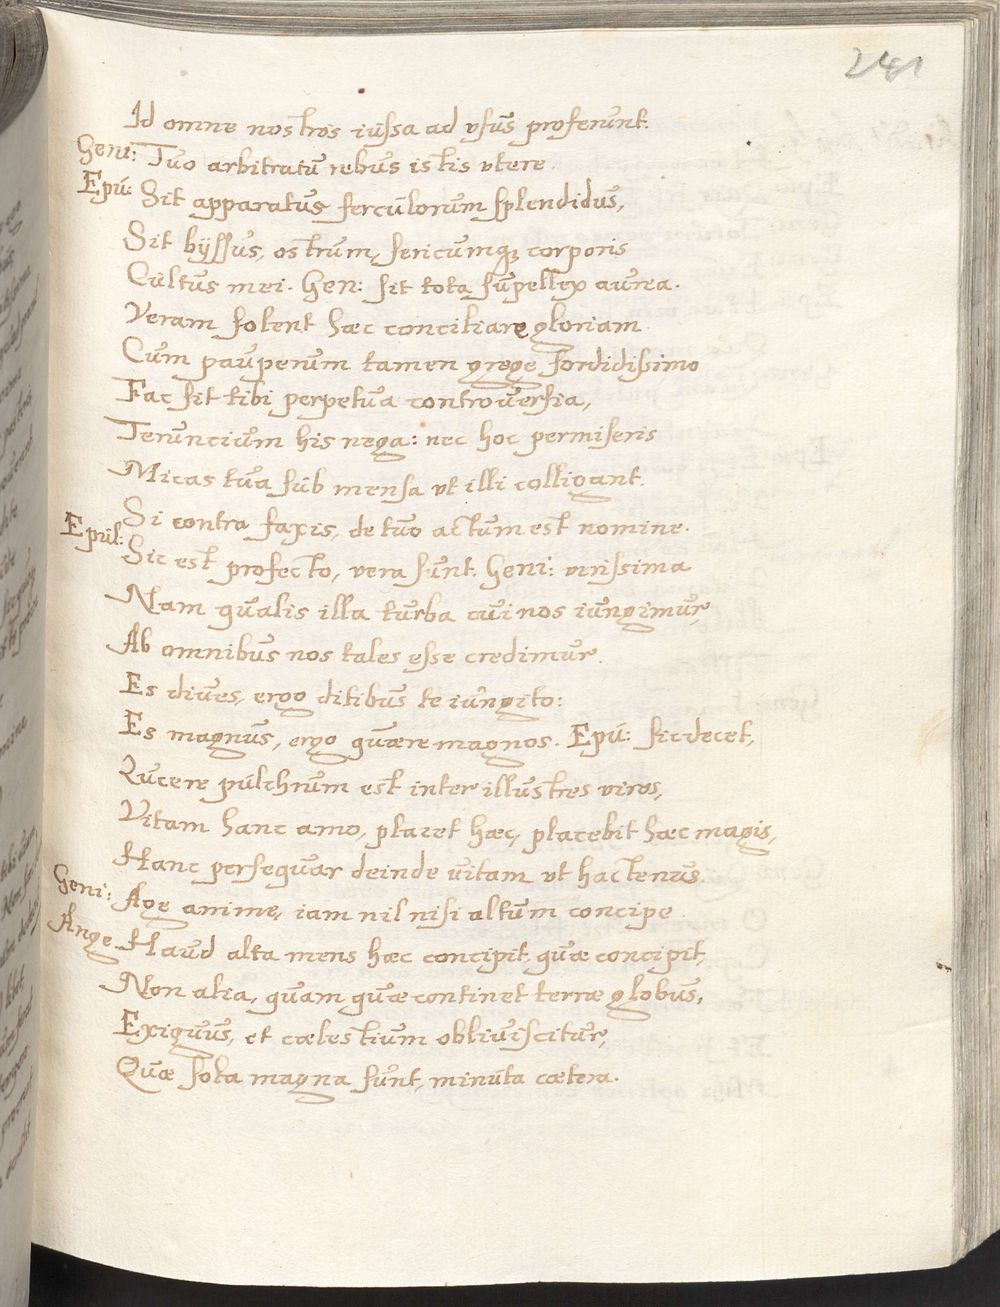 241
Id omne nostros iussa ad usus proferunt.
Geni: Tuo arbitratu rebus istis vtere.
Epu: Sit apparatus ferculorum splendidus,
Sit byssus, ostrum, sericumq; corporis
Cultus mei. Gen: sit tota supellex aurea.
Veram solent hæc conciliare gloriam.
Cum pauperum tamen grege sordidissimo
Fac sit tibi perpetua controversia,
Teruncium his nega: nec hoc permiseris
Micas tua sub mensa vt illi colligant.
Si contra faxis, de tuo actum est nomine.
Epul: Sic est profecto, vera sunt. Geni: verissima
Nam qualis illa turba cui nos iungimur,
Ab omnibus nos tales esse credimur.
Es dives, ergo ditibus te iungito:
Es magnus, ergo quære magnos. Epu: sic decet,
Lucere pulchrum est inter illustres viros,
Vitam hanc amo, placet hæc, placebit hæc magis,
Hanc persequar deinde vitam vt hactenus.
Geni: Age anime, iam nil nisi altum concipe.
Ange Haud alta mens hæc concipit quæ concipit,
Non alia, quam quæ continet terræ globus,
Exiguus, et cælestium obliviscitur,
Quæ sola magna sunt, minuta cætera.